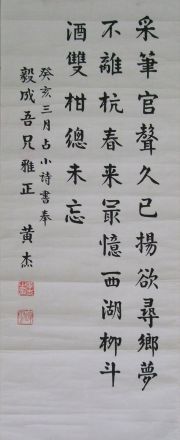 采筆官聲久已揚欲尋鄉夢
不離杭春来最憶西湖柳斗
酒雙柑總未忘
癸亥三月占小詩書奉
毅成吾兄雅正 黄杰